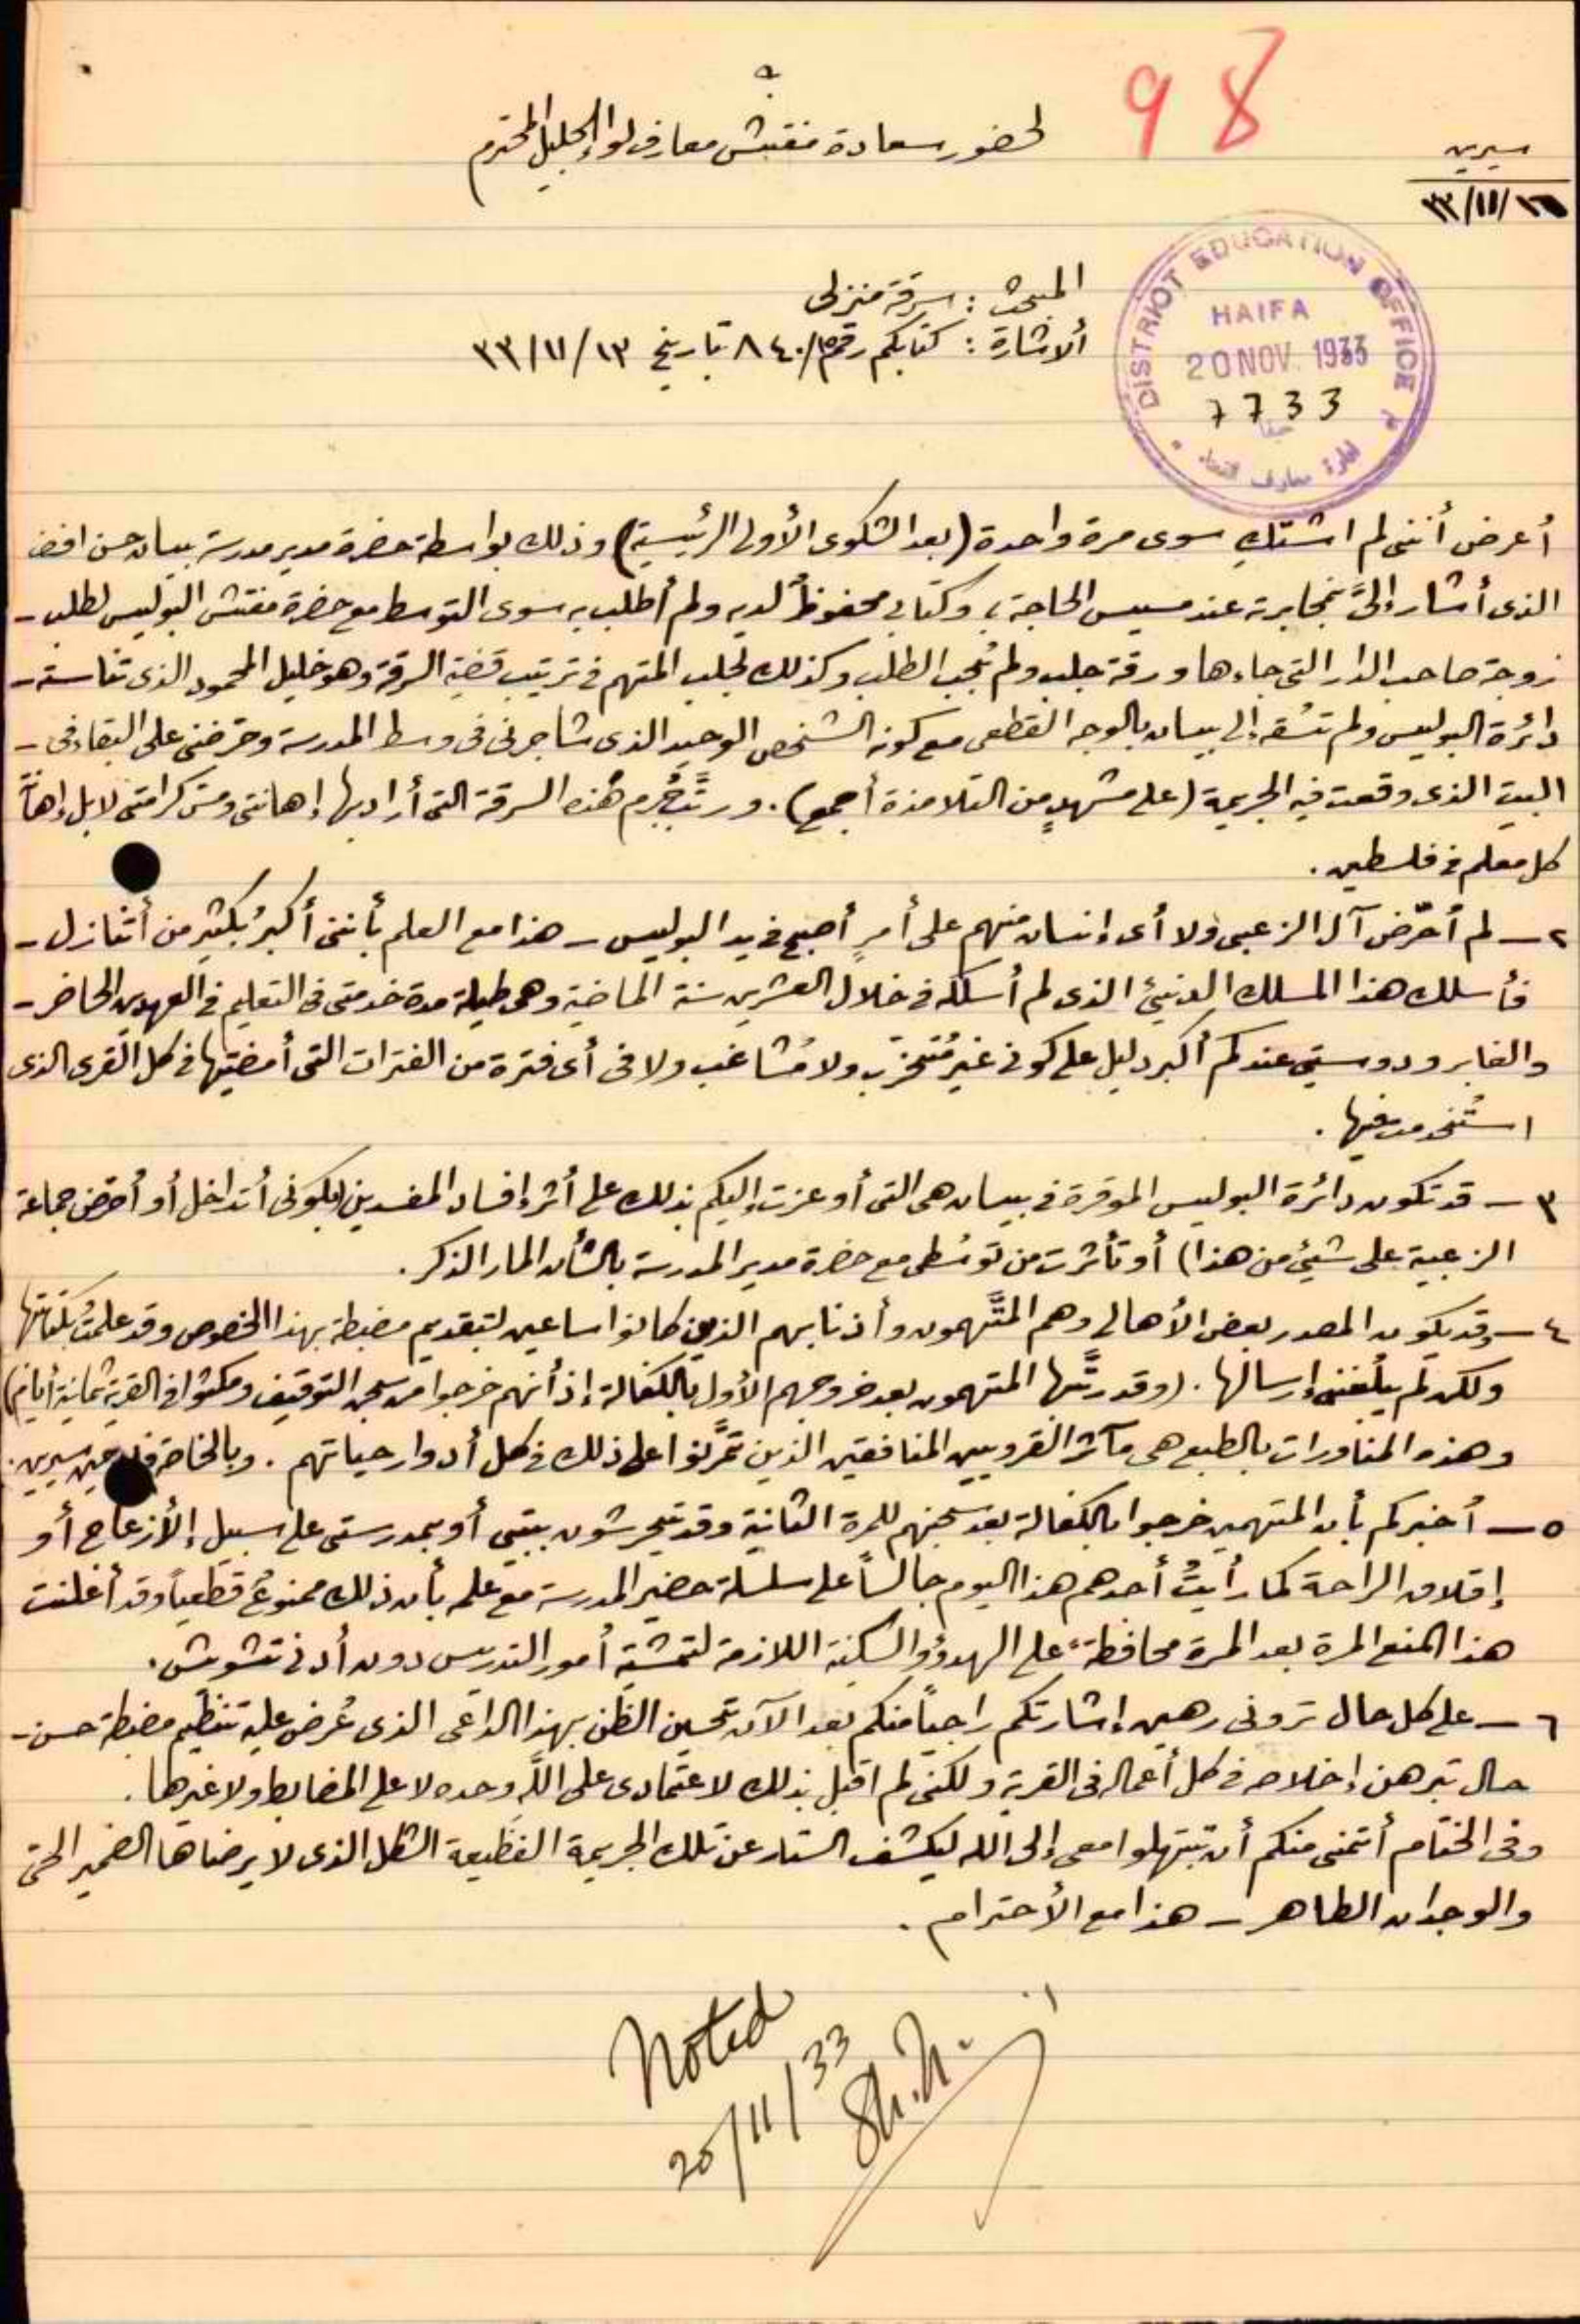 98
سيرين
١٦/١١/٣٣
لحضور سعادة مفتش معارف لواء الجليل المحترم
DISTRICT EDUCATION OFFICE
HAIFA
20 NOV. 1933
7733
حيفا
المبحث: سرقة منزلى
ألاشارة: كتابكم رقم ٨٤٠/ تاريخ ٣٣/١١/١٣
أعرض أننى لم اشتكِ سوى مرة واحدة (بعد الشكوى الأولى الرئيسية) وذلك بواسطة حضرة مدير مدرسة بيسان حسن افندى
الذى أشار إلىَّ بمخابرته عند مسيس الحاجة، وكتابى محفوظٌ لديه ولم أطلب به سوى التوسط مع حضرة مفتش البوليس لطلب -
زوجة صاحب الدار التى جاءها ورقة جلب ولم تُجب الطلب وكذلك لجلب المتهم فى ترتيب قضية السرقة وهو خليل المحمود الذى تناسته -
دائرة البوليس ولم تسُقه إلى بيسان بالوجه القطعى مع كونه الشخص الوحيد الذى شاجرنى فى وسط المدرسة وحرضنى على البقاء فى -
البيت الذى وقعت فيه الجريمة (على مشهدٍ من التلامذة أجمع). ورتَّب جُرم هذه السرقة التى أراد بها إهانتى ومس كرامتى لا بل إهانة
كل معلم فى فلسطين.
٢ - لم أحرّض آل الزعبى ولا أى إنسان منهم على أمرٍ أصبح فى يد البوليس - هذا مع العلم بأننى أكبرُ بكثير من أتنازل -
فأسلك هذا المسلك الدنيئ الذى لم أسلكه فى خلال العشرين سنة الماضية وهى طيلة مدة خدمتى فى التعليم فى العهدين الحاضر -
والغابر ودوسيتى عندكم أكبر دليل على كونى غير مُتحزّب ولا مُشاغب ولا فى أى فترة من الفترات التى أمضيتها فى كل القرى الذى
استُخدمت فيها.
٣ - قد تكون دائرة البوليس الموقرة فى بيسان هى التى أوعزت إليكم بذلك على أثر إفساد المفسدين (بكونى أتداخل أو أحرض جماعة
الزعبية على شيئ من هذا) أو تأثرت من توسُطى مع حضرة مدير المدرسة بالشأن المار الذكر.
٤ - وقد يكون المصدر بعض الأهالى وهم المتَّهمون وأذنابهم الذين كانوا ساعين لتقديم مضبطة بهذا الخصوص وقد علمتُ بكتابتها
ولكن لم يبلُغنى إرسالها. (وقد رتَّبها المتهمون بعد خروجهم الأول بالكفالة إذ أنهم خرجوا من سجن التوقيف ومكثوا فى القرية ثمانية أيام)
وهذه المناورات بالطبع هى مآثر القرويين المنافقين الذين تمرَّنوا على ذلك فى كل أدوار حياتهم. وبالخاصة سيرين.
٥ - أخبركم بأن المتهمين خرجوا بالكفالة بعد سجنهم للمرة الثانية وقد يتحرشون ببيتى أو بمدرستى على سبيل إلأزعاج أو
إقلاق الراحة كما رأيتُ أحدهم هذا اليوم جالساً على سلسلة حضير المدرسة مع علمه بأن ذلك ممنوعُ قطعياً وقد أعلنت
هذا المنع المرة بعد المرة محافظةً على الهدؤ والسكينة اللازمة لتمشية أمور التدريس دون أدنى تشويش.
٦ - على كل حال ترونى رهين إشارتكم راجياً منكم بعد الآن تحسين الظن بهذا الداعى الذى عُرض عليه تنظيم مضبطة حسن -
حال تبرهن إخلاصه فى كل أعماله فى القرية ولكننى لم اقبل بذلك لاعتمادى على الله وحده لا على المضابط ولا غيرها.
وفى الختام أتمنى منكم أن تبتهلوا معى إلى الله ليكشف الستار عن تلك الجريمة الفظيعة الشكل الذى لا يرضاها الضمير الحى
والوجدان الطاهر - هذا مع الأحترام.
Noted
20/11/33
Sh.h.